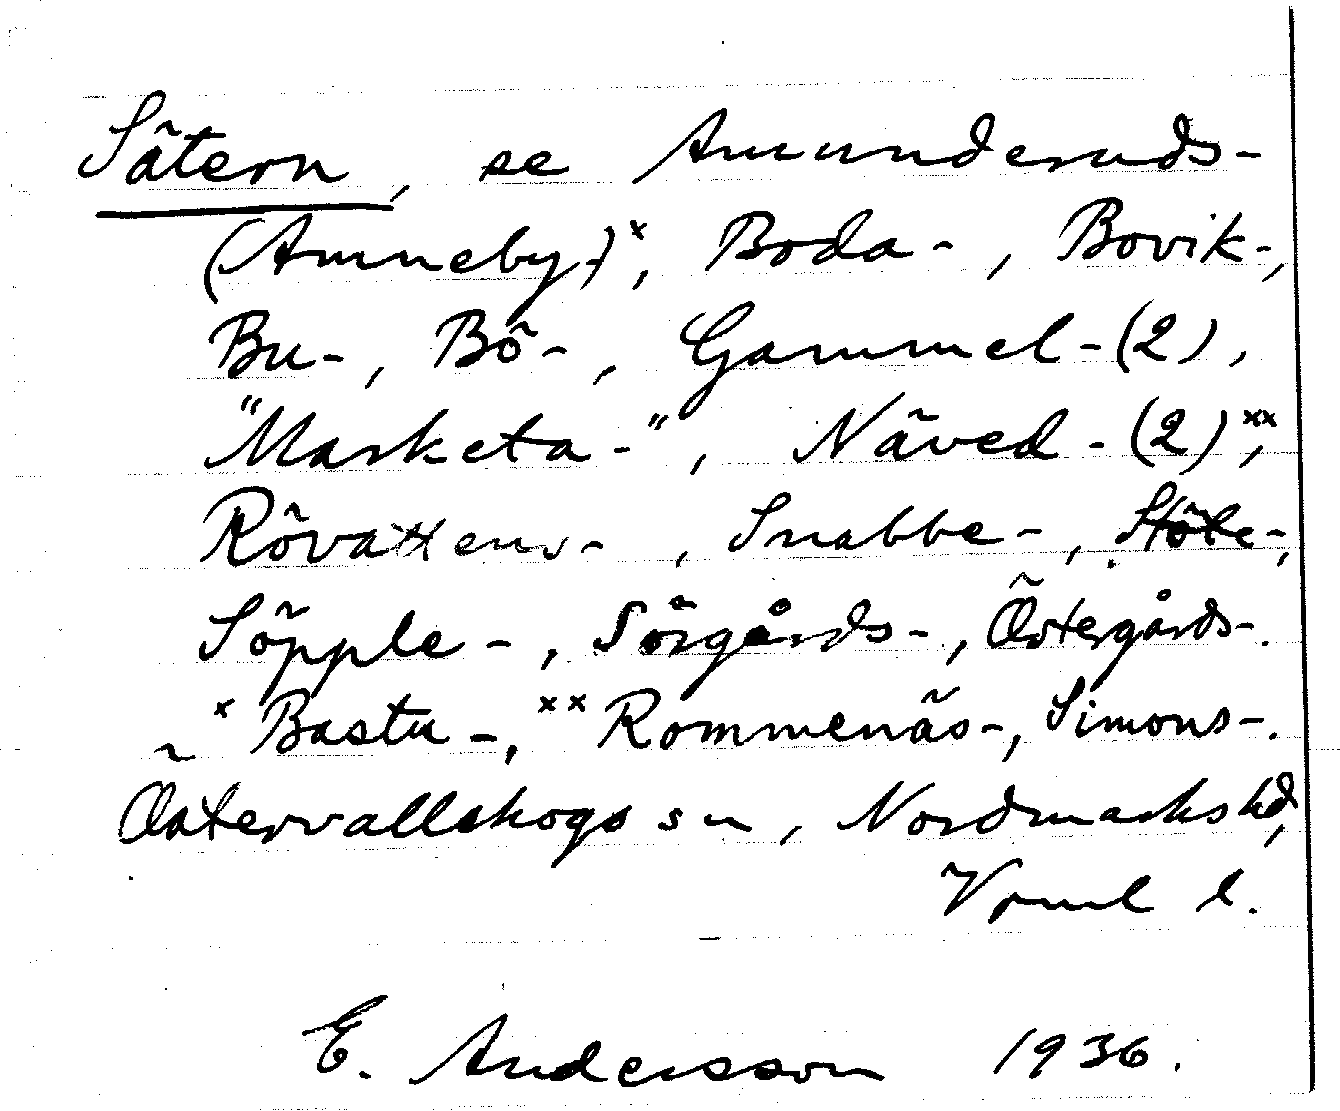 Sätern, se Amunderuds-
(Amneby-)ˣ, Boda-, Bovik-,
Bu-, Bö-, Gammel-(2),
"Marketa-", Näved-(2)ˣˣ,
Rövattens-, Snabbe-, Stöte-,
Söpple-, Sörgårds-, Östergårds-.
ˣ Bastu-, ˣˣ Rommenäs-, Simons-.
Östervallskogs sn, Nordmarks hd,
Vrml l.
E. Andersson 1936.